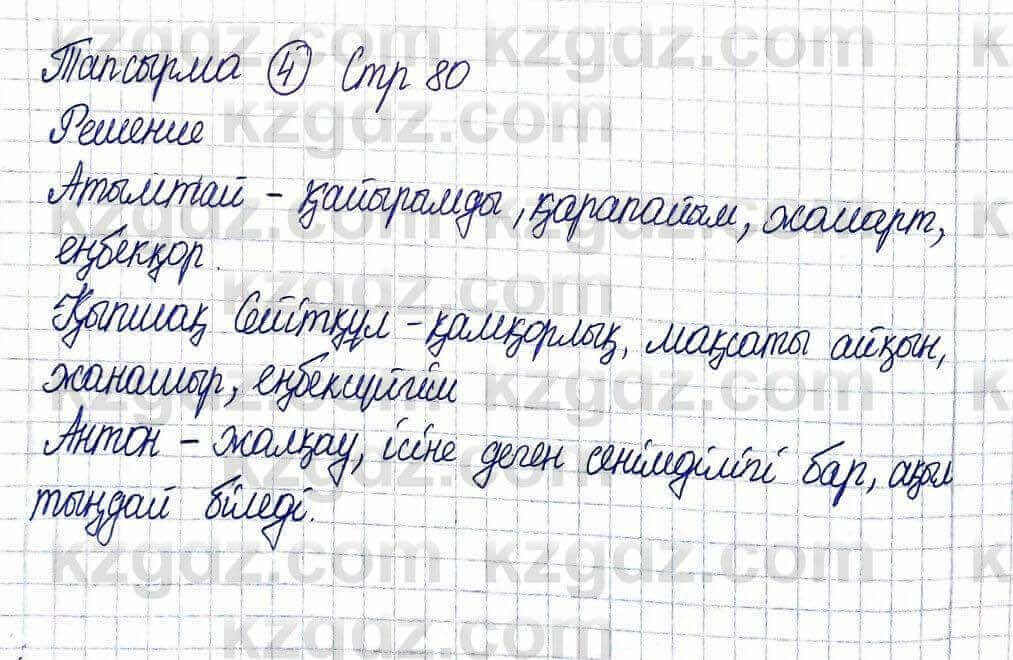 Тапсырма 4 Стр 80
Решение
Атымтай - қайырымды, қарапайым, жомарт,
еңбекқор.
Қыпшақ Сейітқұл - қамқорлық, мақсаты айқын,
жанашыр, еңбексүйгіш
Антон - жалқау, ісіне деген сенімділігі бар, ақыл
тыңдай біледі.
kzgdz.com